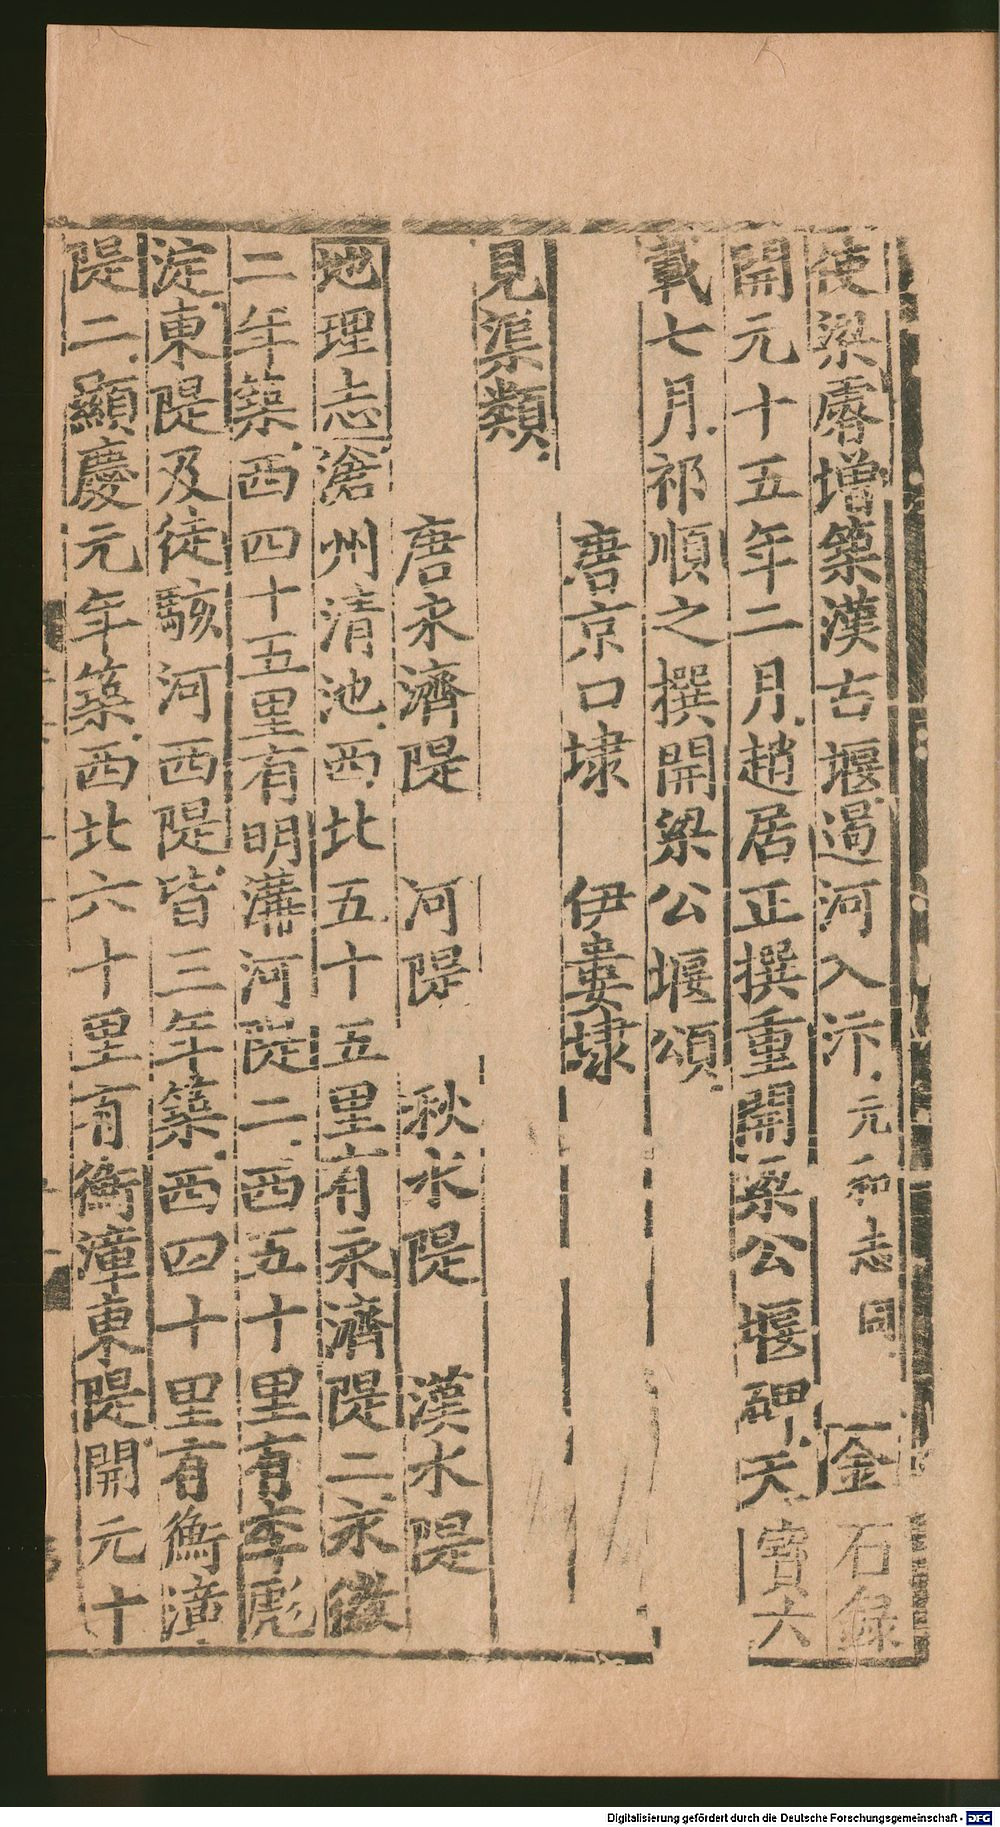 使梁睿增築漢古堰遏河入汴元和志同 金石録
開元十五年二月趙居正撰重開梁公堰碑天寶六
載七月祁順之撰開梁公堰頌
唐京口埭 伊婁埭
見渠類
唐永濟隄 河隄 秋水隄 漢水隄
地理志滄州清池西北五十五里有永濟隄二永徽
二年築西四十五里有明溝河隄二西五十里有李彪
淀東隄及徒駭河西隄皆三年築西四十里有衡漳
隄二顯慶元年築西北六十里有衡漳東隄開元十
Digitalisierung gefördert durch die Deutsche Forschungsgemeinschaft - DFG